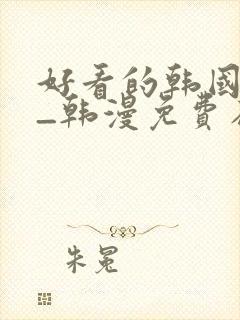 好看的韩国
_韩漫免费
朱冕